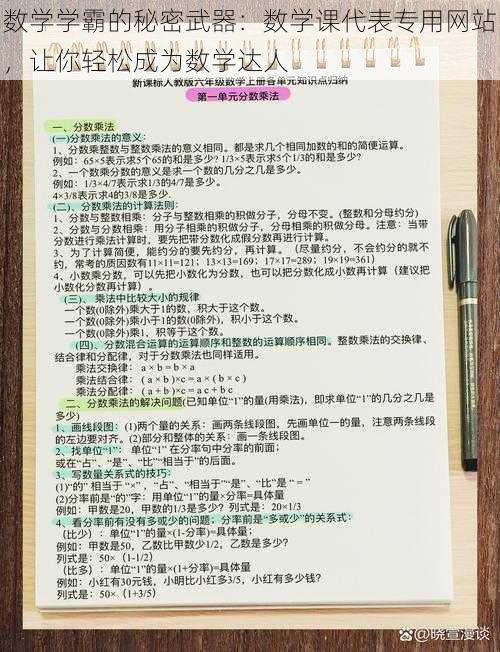 数学学霸的秘密武器：数学课代表专用网站
，让你轻松成为数学达人
新课标人教版六年级数学上册各单元知识点归纳
第一单元分数乘法
一、分数乘法
(一)分数乘法的意义：
1、分数乘整数与整数乘法的意义相同。都是求几个相同加数的和的简便运算。
例如：65×5表示求5个65的和是多少? 1/3×5表示求5个1/3的和是多少?
2、一个数乘分数的意义是求一个数的几分之几是多少。
例如：1/3×4/7表示求1/3的4/7是多少。
4×3/8表示求4的3/8是多少.
(二)、分数乘法的计算法则：
1、分数与整数相乘：分子与整数相乘的积做分子，分母不变。(整数和分母约分)
2、分数与分数相乘：用分子相乘的积做分子，分母相乘的积做分母。注意：当带
分数进行乘法计算时，要先把带分数化成假分数再进行计算。
3、为了计算简便，能约分的要先约分，再计算。（尽量约分，不会约分的就不
约，常考的质因数有11×11=121；13×13=169；17×17=289；19×19=361）
4、小数乘分数，可以先把小数化为分数，也可以把分数化成小数再计算（建议把
小数化分数再计算）。
(三)、乘法中比较大小的规律
一个数(0除外)乘大于1的数，积大于这个数。
一个数(0除外)乘小于1的数(0除外)，积小于这个数。
一个数(0除外)乘1，积等于这个数。
(四)、分数混合运算的运算顺序和整数的运算顺序相同。整数乘法的交换律、
结合律和分配律，对于分数乘法也同样适用。
乘法交换律： a × b = b × a
乘法结合律： ( a × b )×c = a × ( b × c )
乘法分配律： ( a + b )×c = a c + b c
二、分数乘法的解决问题(已知单位“1”的量(用乘法)，即求单位“1”的几分之几是
多少)
1、画线段图：(1)两个量的关系：画两条线段图，先画单位一的量，注意两条线段
的左边要对齐。(2)部分和整体的关系：画一条线段图。
2、找单位“1”： 单位“1” 在分率句中分率的前面；
或在“占”、“是”、“比”“相当于”的后面。
3、写数量关系式的技巧：
(1)“的” 相当于 “×” ，“占”、“相当于”“是”、“比”是 “ = ”
(2)分率前是“的”字：用单位“1”的量×分率=具体量
例如：甲数是20，甲数的1/3是多少? 列式是：20×1/3
4、看分率前有没有多或少的问题；分率前是“多或少”的关系式：
（比少）：单位“1”的量×(1-分率)=具体量；
例如：甲数是50，乙数比甲数少1/2，乙数是多少?
列式是：50×（1-1/2）
（比多）：单位“1”的量×(1+分率)=具体量
例如：小红有30元钱，小明比小红多3/5，小红有多少钱?
列式是：50×（1+3/5）
@晓萱漫谈